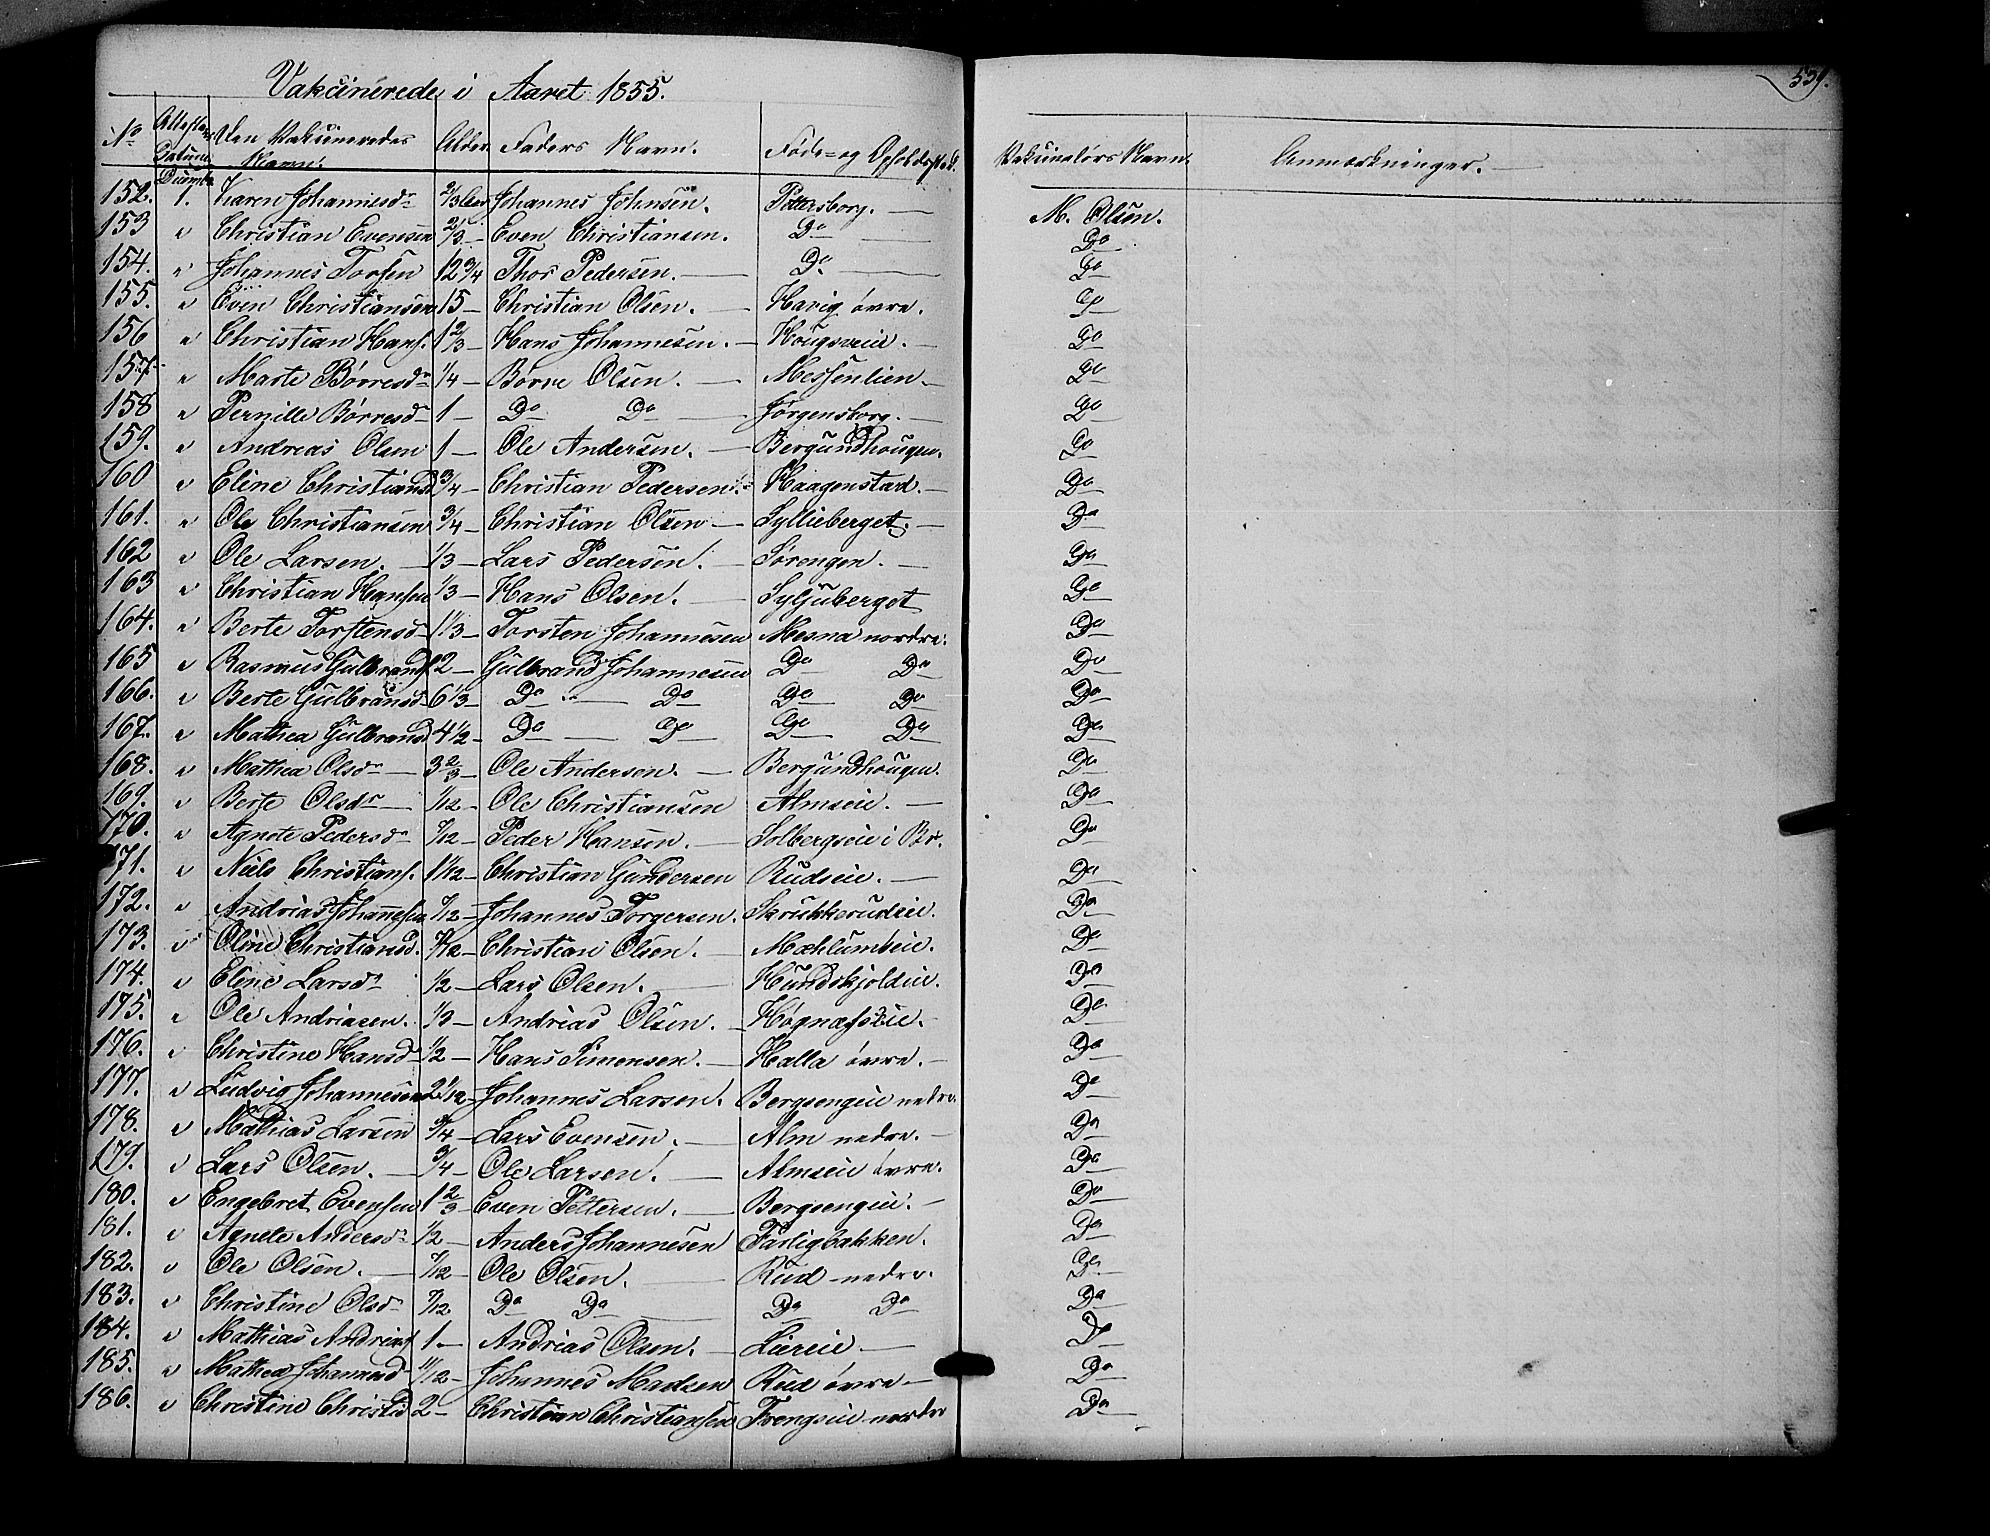 539.
Vakcinerede i Aaret 1855.
No Attestens Datum Den Vakcineredes Navn. Alder Faders Navn. Føde- og Opholdssted. Vakcinatørs Navn. Anmærkninger.
Decembr
152. 1. Karen Johannesdr 2/3 Aar Johannes Johnsen. Pettersborg. M. Olsen.
153 " Christian Evensen 2/3 Even Christiansen. Do Do
154. " Johannes Torsen 12 3/4 Thor Pedersen. Do Do
155. " Even Christiansen 15 Christian Olsen. Havig övre. Do
156 " Christian Hans. 1 2/3 Hans Johannesen. Hougseie. Do
157. " Marte Børresdr 1/4 Børre Olsen. Messenlien Do
158 " Pernille Børresdr 1 Do Do Jørgensborg. Do
159. " Andreas Olsen 1 Ole Andersen. Bergundhougen. Do
160 " Eline Christiansd 3/4 Christian Pedersen. Haagenstad. Do
161. " Ole Christiansen 3/4 Christian Olsen Syllieberget. Do
162 " Ole Larsen. 1/3 Lars Pedersen. Sørengen. Do
163 " Christian Hansen 1/3 Hans Olsen. Syljuberget Do
164. " Berte Torstensd 1 1/3 Torsten Johannesen Mesna nordre. Do
165 " Rasmus Gulbrands 12 Gulbrand Johannesen Do Do Do
166. " Berte Gulbrandsd 6 1/3 Do Do Do Do Do
167. " Mathea Gulbrandsd 4 1/2 Do Do Do Do Do
168. " Mathea Olsdr 3 2/3 Ole Andersen. Bergundhougen. Do
169. " Berte Olsdr 1/12 Ole Christiansen Almseie. Do
170. " Agnete Pedersdr /12 Peder Hansen. Solbergseie i Br. Do
171. " Niels Christians. 1 1/12 Christian Gundersen Rudseie. Do
172. " Andrias Johannesen /12 Johannes Torgersen. Skrukkerudeie. Do
173. " Oline Christiansd. /12 Christian Olsen. Mæhlumseie. Do
174. " Eline Larsdr 1/2 Lars Olsen. Hundskjoldeie. Do
175. " Ole Andriasen. 1/2 Andrias Olsen. Høgnæsseie. Do
176. " Christine Hansd 1/2 Hans Simensen. Halla övre. Do
177. " Ludvig Johannesen 2 1/12 Johannes Larsen. Bergsengeie nedre. Do
178. " Mathias Larsen 3/4 Lars Evensen. Alm nedre. Do
179. " Lars Olsen. 3/4 Ole Larsen. Almseie övre. Do
180. " Engebret Evensen 1 2/3 Even Pettersen. Bergsengeie. Do
181. " Agnete Andersdr 1/2 Anders Johannesen Farligbakken. Do
182. " Ole Olsen. /12 Ole Olsen. Rud nedre. Do
183. " Christine Olsdr /12 Do Do Do Do Do
184. " Mathias Andrias 1 Andrias Olsen. Liereie Do
185. " Mathea Johannesd 11/12 Johannes Madsen Rud övre Do
186. " Christine Christisd 2 Christian Christiansen Trengseie nordre Do